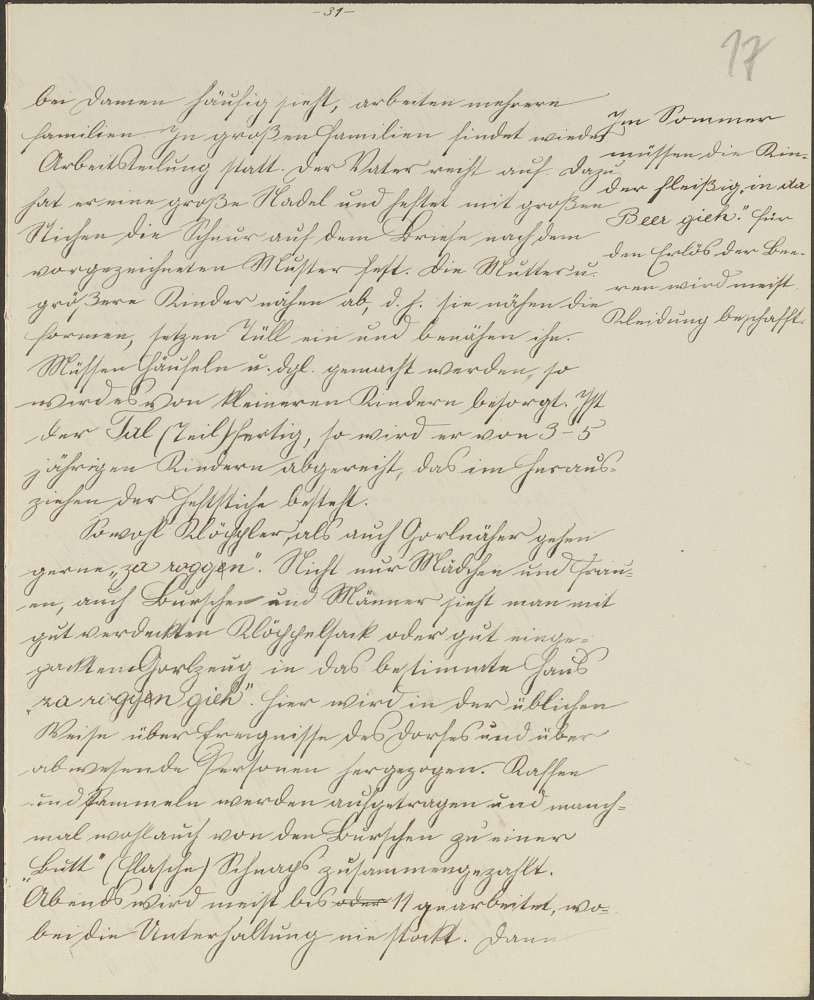 -31-
17
bei Damen häufig sieht, arbeiten mehrere
Familien. In großen Familien findet wieder
Arbeitsteilung statt. Der Vater reiht auf. Dazu
hat er eine große Nadel und heftet mit großen
Stichen die Schnur auf dem Briefe nach dem
vorgezeichneten Muster fest. Die Mutter u.
größere Kinder nähen ab, d. h. sie nähen die
Formen, setzen Tüll ein und benähen ihn.
Müssen Häufeln u. dgl. gemacht werden, so
wird es von kleineren Kindern besorgt. Ist
der Tal (Teil) fertig, so wird er von 3-5
jährigen Kindern abgereiht, das im Heraus-
ziehen der Heftstiche besteht.
Sowohl Klöppler, als auch Gorlnäher gehen
gerne „za roggen". Nicht nur Mädchen und Frau-
en, auch Burschen und Männer sieht man mit
gut verdecktem Klöppelsack oder gut einge-
packtem Gorlzeug in das bestimmte Haus
„za roggen gieh". Hier wird in der üblichen
Weise über Ereignisse des Dorfes und über
abwesende Personen hergezogen. Kaffee
und Semmeln werden aufgetragen und manch-
mal wohl auch von den Burschen zu einer
„Butt" (Flasche) Schnaps zusammengezahlt.
Abends wird meist bis oder 11 gearbeitet, wo-
bei die Unterhaltung nie stockt. Dann
Im Sommer
müssen die Kin-
der fleißig „in da
Beer gieh". Für
den Erlös der Bee-
ren wird meist
Kleidung beschafft.